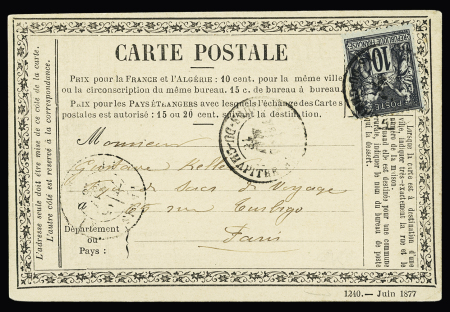 CARTE POSTALE
PRIX pour la FRANCE et l'ALGÉRIE : 10 cent. pour la même ville
ou la circonscription du même bureau. 15 c. de bureau à bureau.
PRIX pour les PAYS ÉTRANGERS avec lesquels l'échange des Cartes
postales est autorisé : 15 ou 20 cent. suivant la destination.
L'adresse seule doit être mise de ce côté de la carte.
L'autre côté est réservé à la correspondance.
10
Monsieur
de Sacs de Voyage
65 rue Turbigo
Paris
Département
ou
Pays :
Lorsque la carte est à destination d'une
ville, indiquer très-exactement la rue et le
numéro de la maison.
quand elle est destinée pour une commune
rurale, indiquer le nom du bureau de poste
1240. — Juin 1877